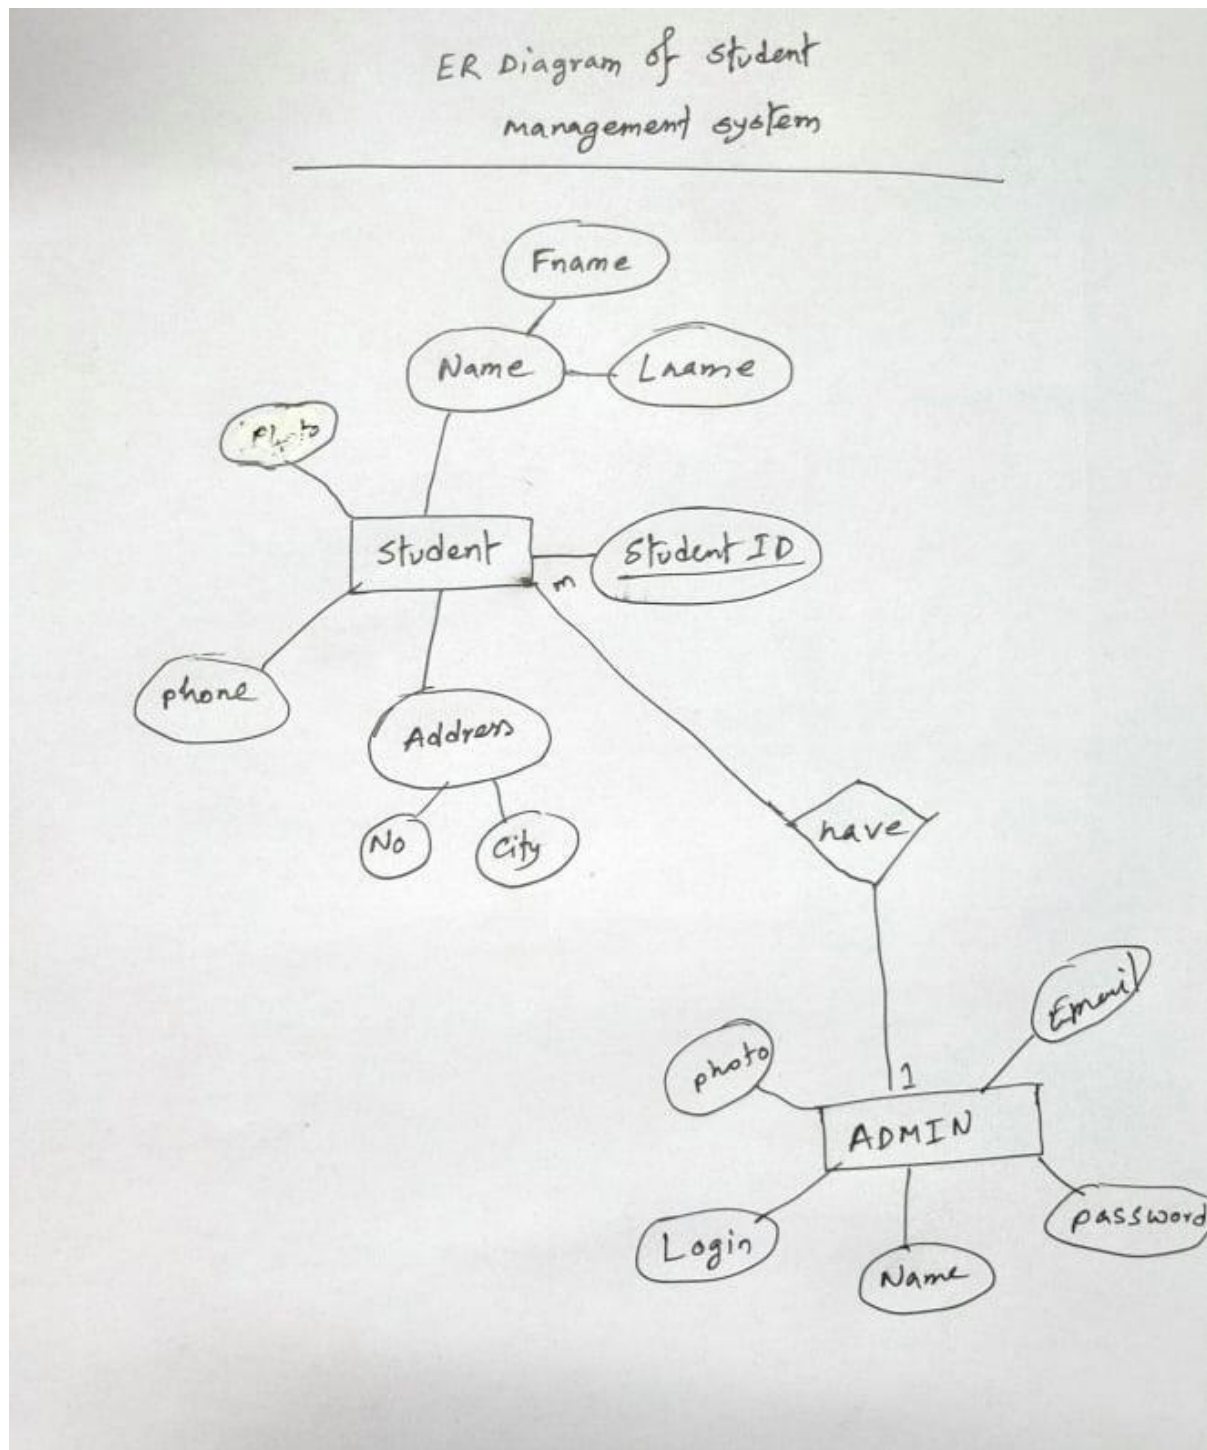 ER Diagram of student
management system
Fname
Name
Lname
Photo
student
Student ID
m
phone
Address
No
City
have
Email
photo
1
ADMIN
password
Login
Name